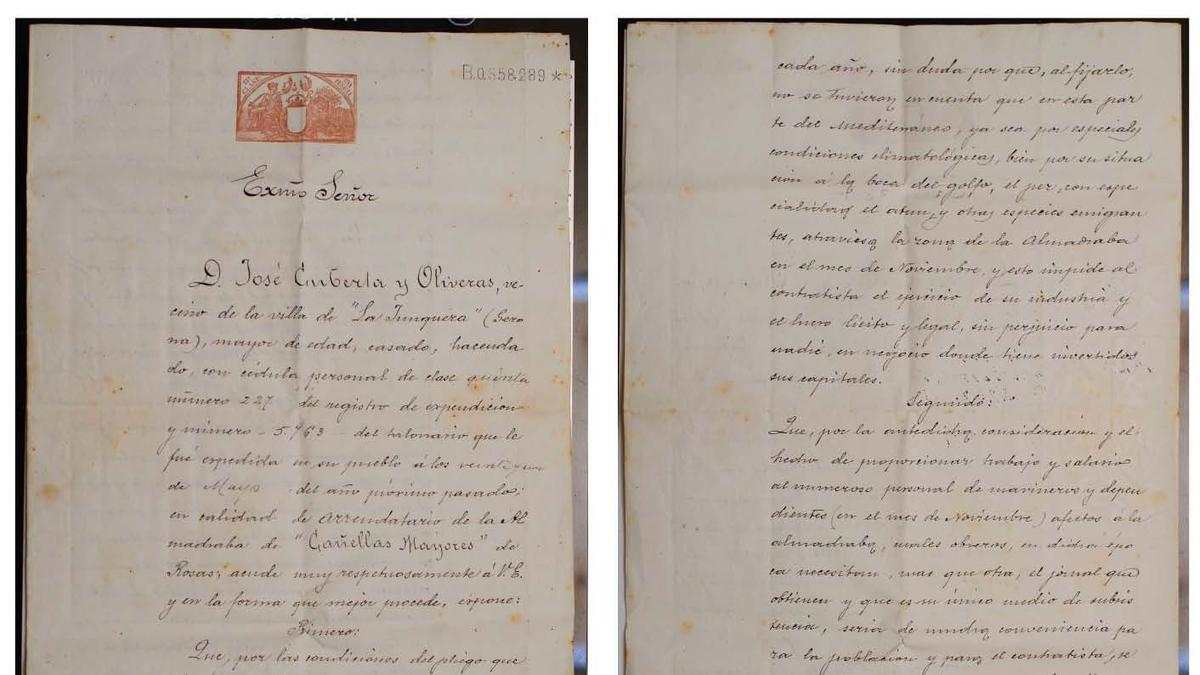 B.0.858.289 *
Exmo Señor
D. José Cuberta y Oliveras, ve-
cino de la villa de "La Junquera" (Gero
na), mayor de edad, casado, hacenda
do, con cédula personal de clase quinta
número 227 del registro de expendicion
y número - 5.763 - del talonario que le
fué expedida en su pueblo á los veintiyuno
de Mayo del año próximo pasado;
en calidad de arrendatario de la Al
madraba de "Cañellas Mayores" de
Rosas; acude muy respetuosamente á V.E.
y en la forma que mejor procede, expone:
Primero:
Que, por las condiciones del pliego que
cada año, sin duda por que, al fijarlo,
no se tuvieron en cuenta que en esta par
te del Mediterráneo, ya sea por especiales
condiciones climatológicas, bien por su situa
ción á la boca del golfo, el pez, con espe
cialidad el atun, y otras especies emigran
tes, atraviesa la zona de la Almadraba
en el mes de Noviembre, y esto impide al
contratista el ejercicio de su industria y
el lucro lícito y legal, sin perjuicio para
nadie, en negocio donde tiene invertidos
sus capitales.
Segundo:
Que, por la antedicha consideracion y el
hecho de proporcionar trabajo y salario
al numeroso personal de marineros y depen
dientes (en el mes de Noviembre) afectos á la
almadraba, cuales obreros, en dicha épo
ca necesitan, mas que otra, el jornal que
obtienen y que es su único medio de subsis
tencia, seria de mucha conveniencia pa
ra la poblacion y para el contratista, se